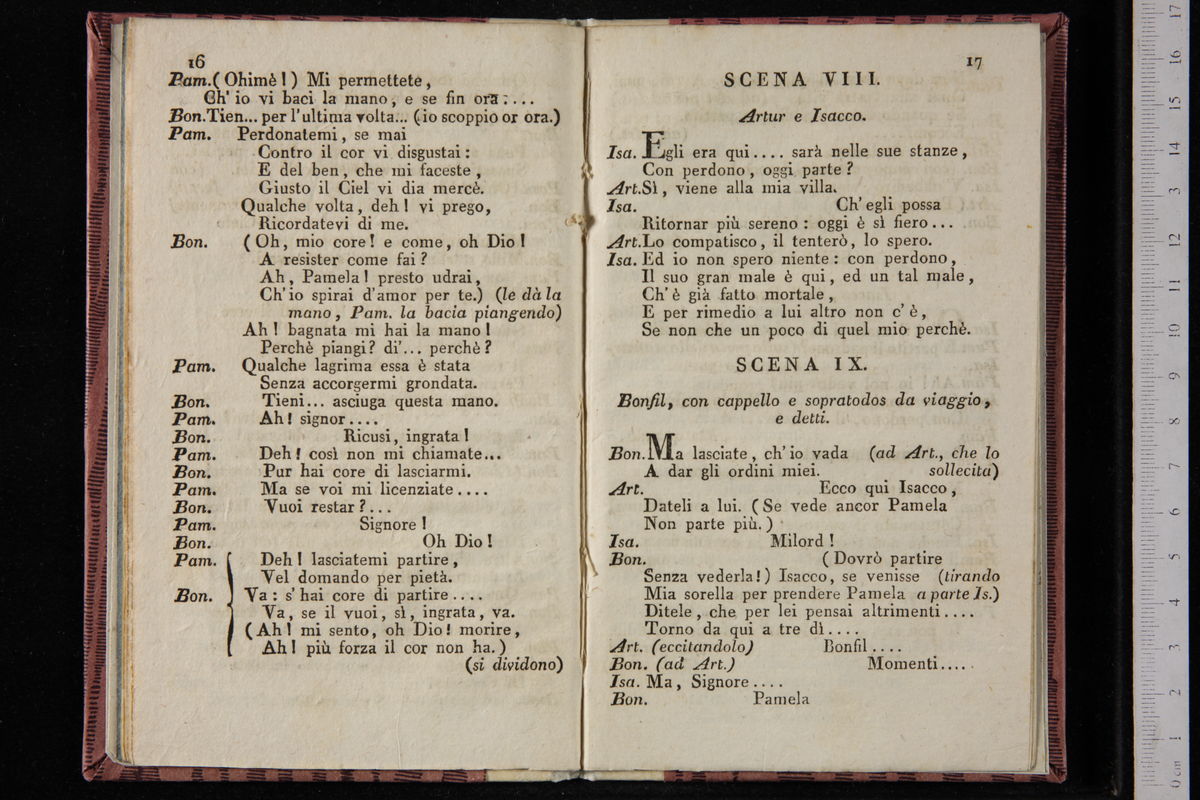 16
Pam. ( Ohimè ! ) Mi permettete ,
Ch' io vi baci la mano , e se fin ora : . . .
Bon. Tien... per l'ultima volta... ( io scoppio or ora.)
Pam. Perdonatemi , se mai
Contro il cor vi disgustai :
E del ben , che mi faceste ,
Giusto il Ciel vi dia mercè.
Qualche volta , deh ! vi prego,
Ricordatevi di me.
Bon. ( Oh, mio core ! e come, oh Dio !
A resister come fai ?
Ah , Pamela ! presto udrai ,
Ch' io spirai d'amor per te.) (le dà la
mano , Pam. la bacia piangendo)
Ah ! bagnata mi hai la mano !
Perchè piangi? di'... perchè ?
Pam. Qualche lagrima essa è stata
Senza accorgermi grondata.
Bon. Tieni... asciuga questa mano.
Pam. Ah ! signor . . . .
Bon. Ricusi, ingrata !
Pam. Deh ! così non mi chiamate...
Bon. Pur hai core di lasciarmi.
Pam. Ma se voi mi licenziate . . . .
Bon. Vuoi restar ? . . .
Pam. Signore !
Bon. Oh Dio !
Pam. Deh ! lasciatemi partire ,
Vel domando per pietà.
Bon. Va : s' hai core di partire . . . .
Va , se il vuoi , sì , ingrata , va.
( Ah ! mi sento, oh Dio ! morire ,
Ah ! più forza il cor non ha. )
(si dividono)
17
SCENA VIII.
Artur e Isacco.
Isa. Egli era qui . . . . sarà nelle sue stanze ,
Con perdono , oggi parte ?
Art. Sì , viene alla mia villa.
Isa. Ch' egli possa
Ritornar più sereno : oggi è sì fiero . . .
Art. Lo compatisco , il tenterò , lo spero.
Isa. Ed io non spero niente : con perdono ,
Il suo gran male è qui , ed un tal male ,
Ch' è già fatto mortale ,
E per rimedio a lui altro non c' è ,
Se non che un poco di quel mio perchè.
SCENA IX.
Bonfil, con cappello e sopratodos da viaggio ,
e detti.
Bon. Ma lasciate , ch' io vada (ad Art., che lo
A dar gli ordini miei. sollecita)
Art. Ecco qui Isacco ,
Dateli a lui. ( Se vede ancor Pamela
Non parte più. )
Isa. Milord !
Bon. ( Dovrò partire
Senza vederla ! ) Isacco, se venisse (tirando
Mia sorella per prendere Pamela a parte Is.)
Ditele , che per lei pensai altrimenti . . . .
Torno da qui a tre dì . . . .
Art. (eccitandolo) Bonfil . . . .
Bon. (ad Art.) Momenti . . . .
Isa. Ma , Signore . . . .
Bon. Pamela
0 cm 1 2 3 4 5 6 7 8 9 10 11 12 13 14 15 16 17